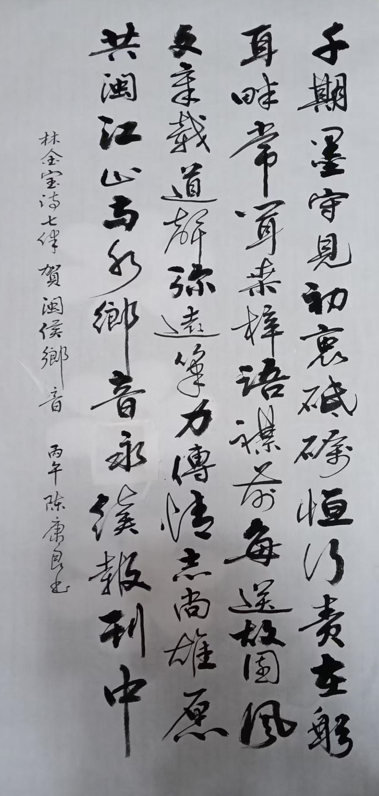 千期墨守見初衷砥礪恒行責在躬
耳畔常闻桑梓语襟前每送故園風
文章载道聲弥遠筆力傳情志尚雄愿
共闽江山与水鄉音永续報刊中
林金宝诗七律贺闽侯鄉音 丙午陈康良书